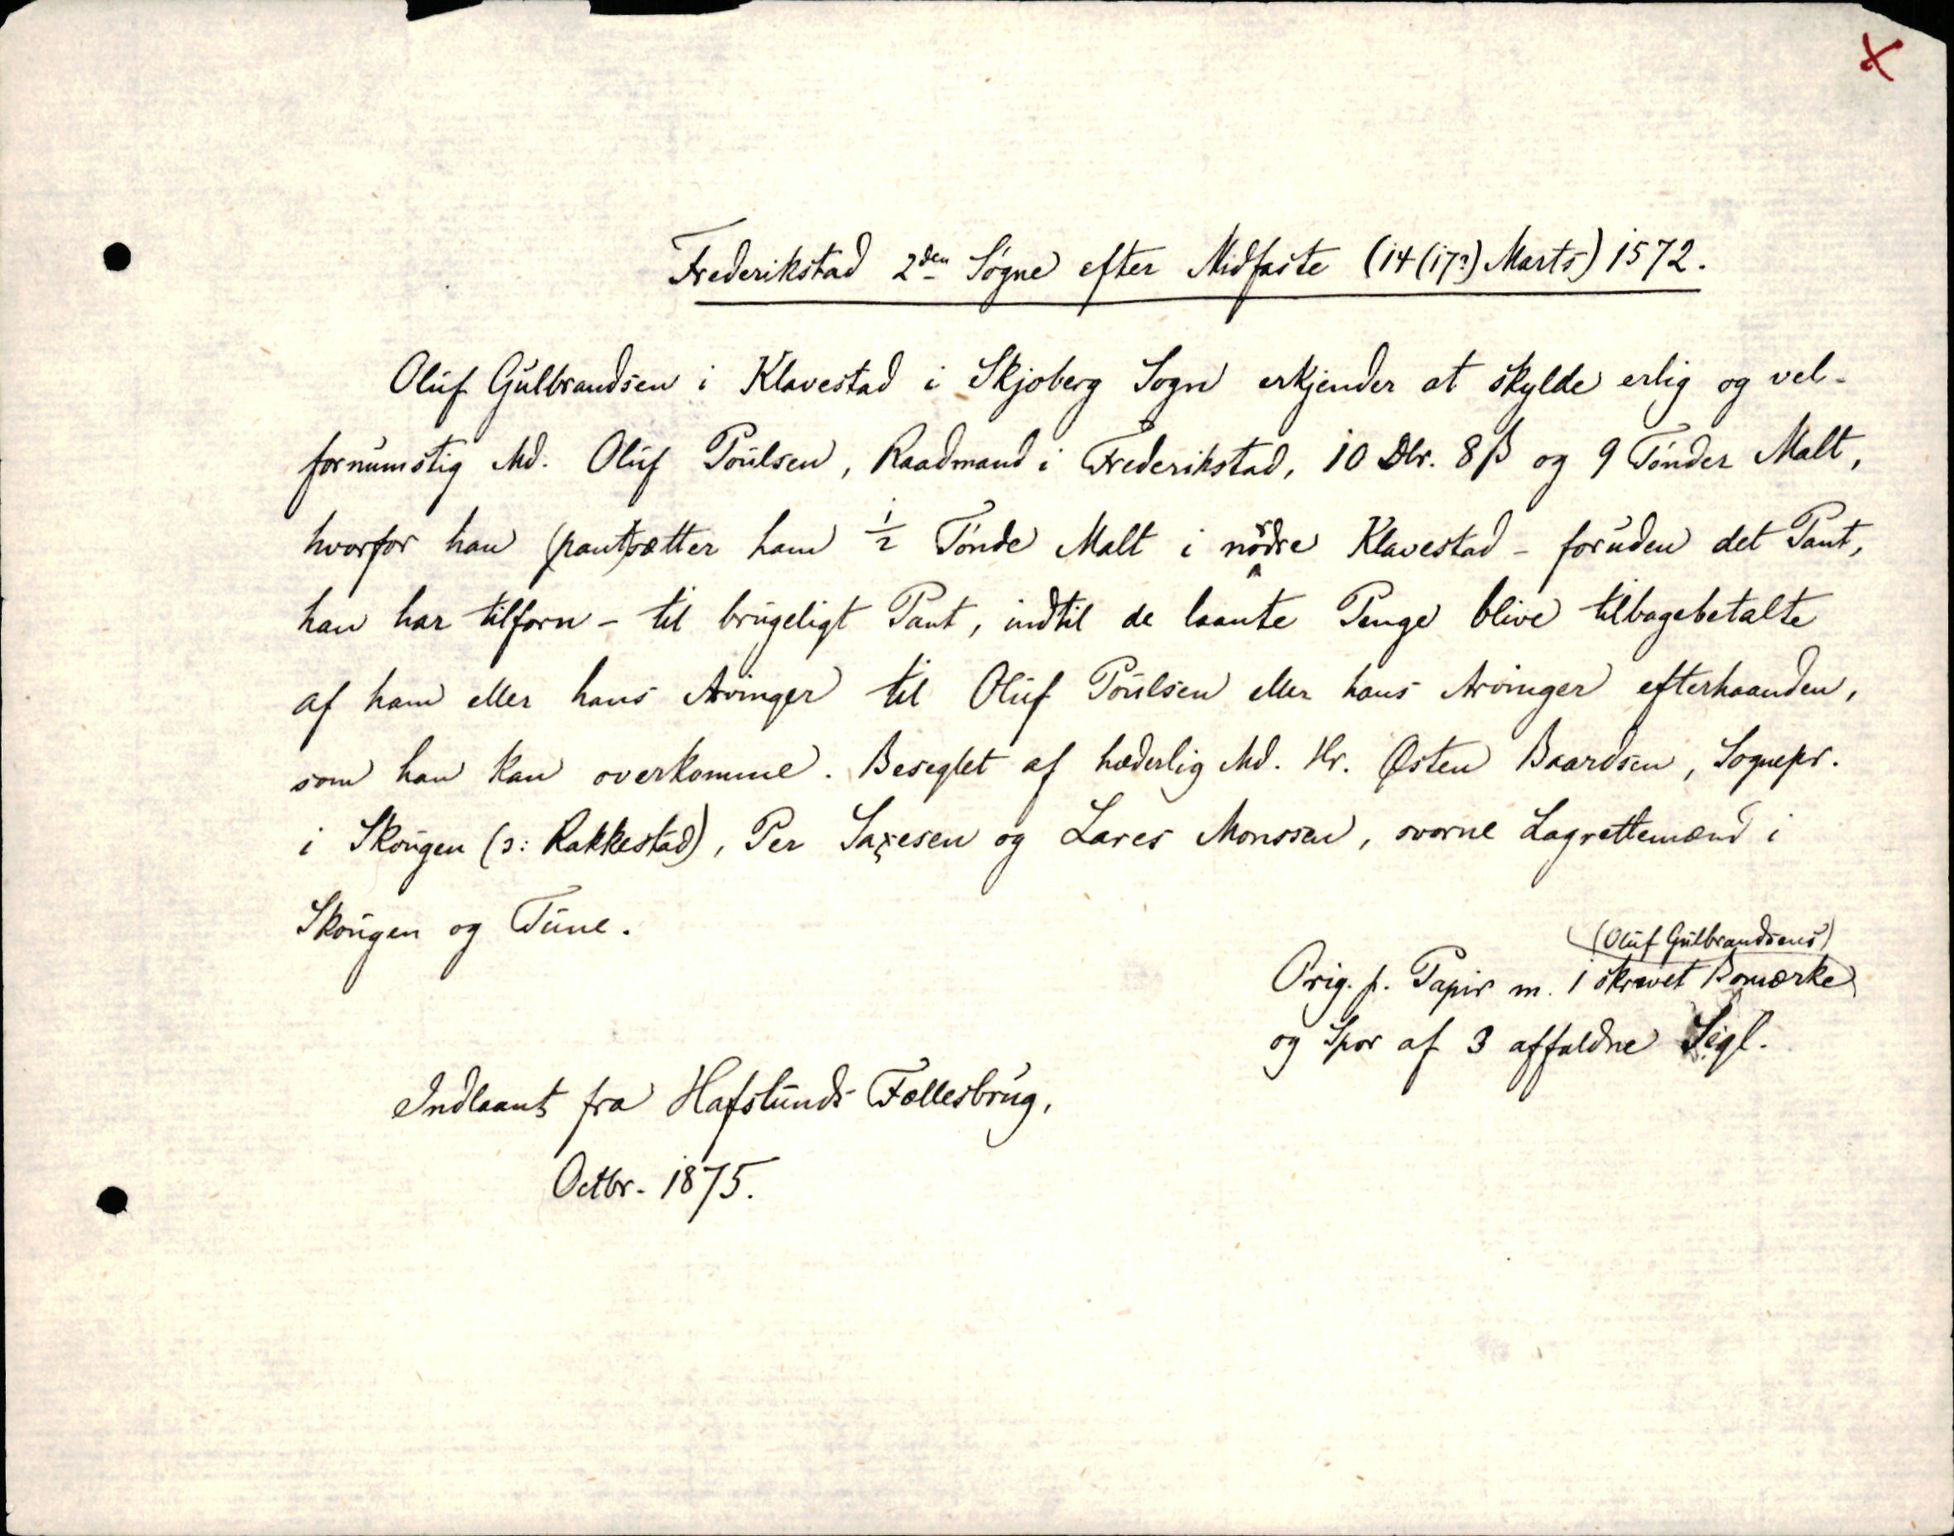 Frederikstad 2den Søgne efter Midfaste (14 (17?) Marts) 1572.
Oluf Gulbrandsen i Klavestad i Skjoberg Sogn erkjender at skylde erlig og vel-
fornumstig Md. Oluf Poulsen, Raadmand i Frederikstad, 10 Dlr. 8 ß og 9 Tønder Malt,
hvorfor han pantsætter ham ½ Tønde Malt i nørdre Klavestad - foruden det Pant,
han har tilforn - til brugeligt Pant, indtil de laante Penge blive tilbagebetalte
af ham eller hans Arvinger til Oluf Poulsen eller hans Arvinger efterhaanden,
som han kan overkomme. Beseglet af hæderlig Md. Hr. Østen Baardsen, Sognepr.
i Skougen (ɔ: Rakkestad), Per Saxesen og Lares Monssen, svorne Lagrettemænd i
Skougen og Tune.
(Oluf Gulbrandsens)
Orig. p. Papir m. 1 skrevet Bomærke
og Spor af 3 affaldne Sigl.
Indlaant fra Hafslunds Fællesbrug,
Octbr. 1875.